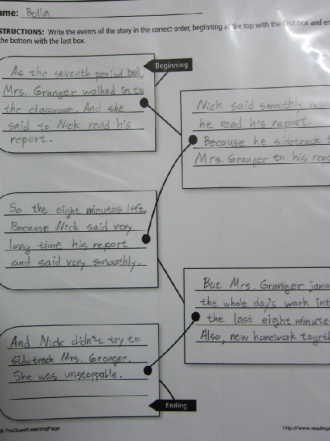 ame: Bella
STRUCTIONS: Write the events of the story in the correct order, beginning at the top with the first box and en
the bottom with the last box.
Beginning
As the seventh period bell,
Mrs. Granger walked into
the classroom. And she
said to Nick read his
report.
Nick said smoothly
he read his report.
Because he sidetrack
Mrs. Granger to his rea
So the eight minutes left.
Because Nick said very
long time his report
and said very smoothly.
But Mrs. Granger jamm
the whole day's work int
the last eight minute
Also, new homework togeth
And Nick didn't try to
sidetrack Mrs. Granger.
She was unstoppable.
Ending
© ProQuest LearningPage
http://www.reading